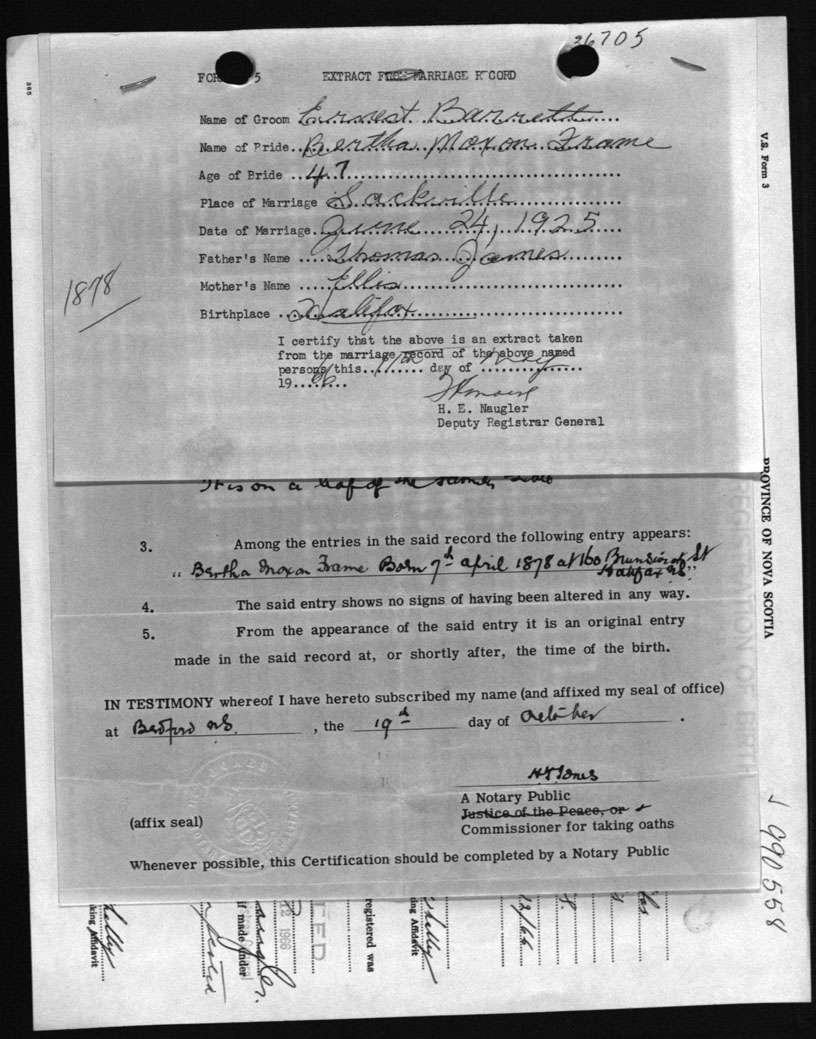 26705
FORM 5 EXTRACT FROM MARRIAGE RECORD
Name of Groom Ernest Barrett
Name of Bride Bertha Moxon Frame
Age of Bride 47
Place of Marriage Sackville
Date of Marriage June 24, 1925
Father's Name Thomas James
Mother's Name Ellis
Birthplace Halifax
1878
I certify that the above is an extract taken
from the marriage record of the above named
persons this 11th day of May
1966
H. E. Naugler
Deputy Registrar General
It is on a leaf of the same
3. Among the entries in the said record the following entry appears:
"Bertha Moxon Frame Born 7th April 1878 at 160 Brunswick St
Halifax NS"
4. The said entry shows no signs of having been altered in any way.
5. From the appearance of the said entry it is an original entry
made in the said record at, or shortly after, the time of the birth.
IN TESTIMONY whereof I have hereto subscribed my name (and affixed my seal of office)
at Bedford NS. , the 19th day of October .
H Jones
A Notary Public
Justice of the Peace, or
(affix seal)
Commissioner for taking oaths
Whenever possible, this Certification should be completed by a Notary Public
V.S. Form 3
PROVINCE OF NOVA SCOTIA
REGISTRATION OF BIRTH
990558
king Affidavit
if made under
12 1966
registered was
king Affidavit
12/66